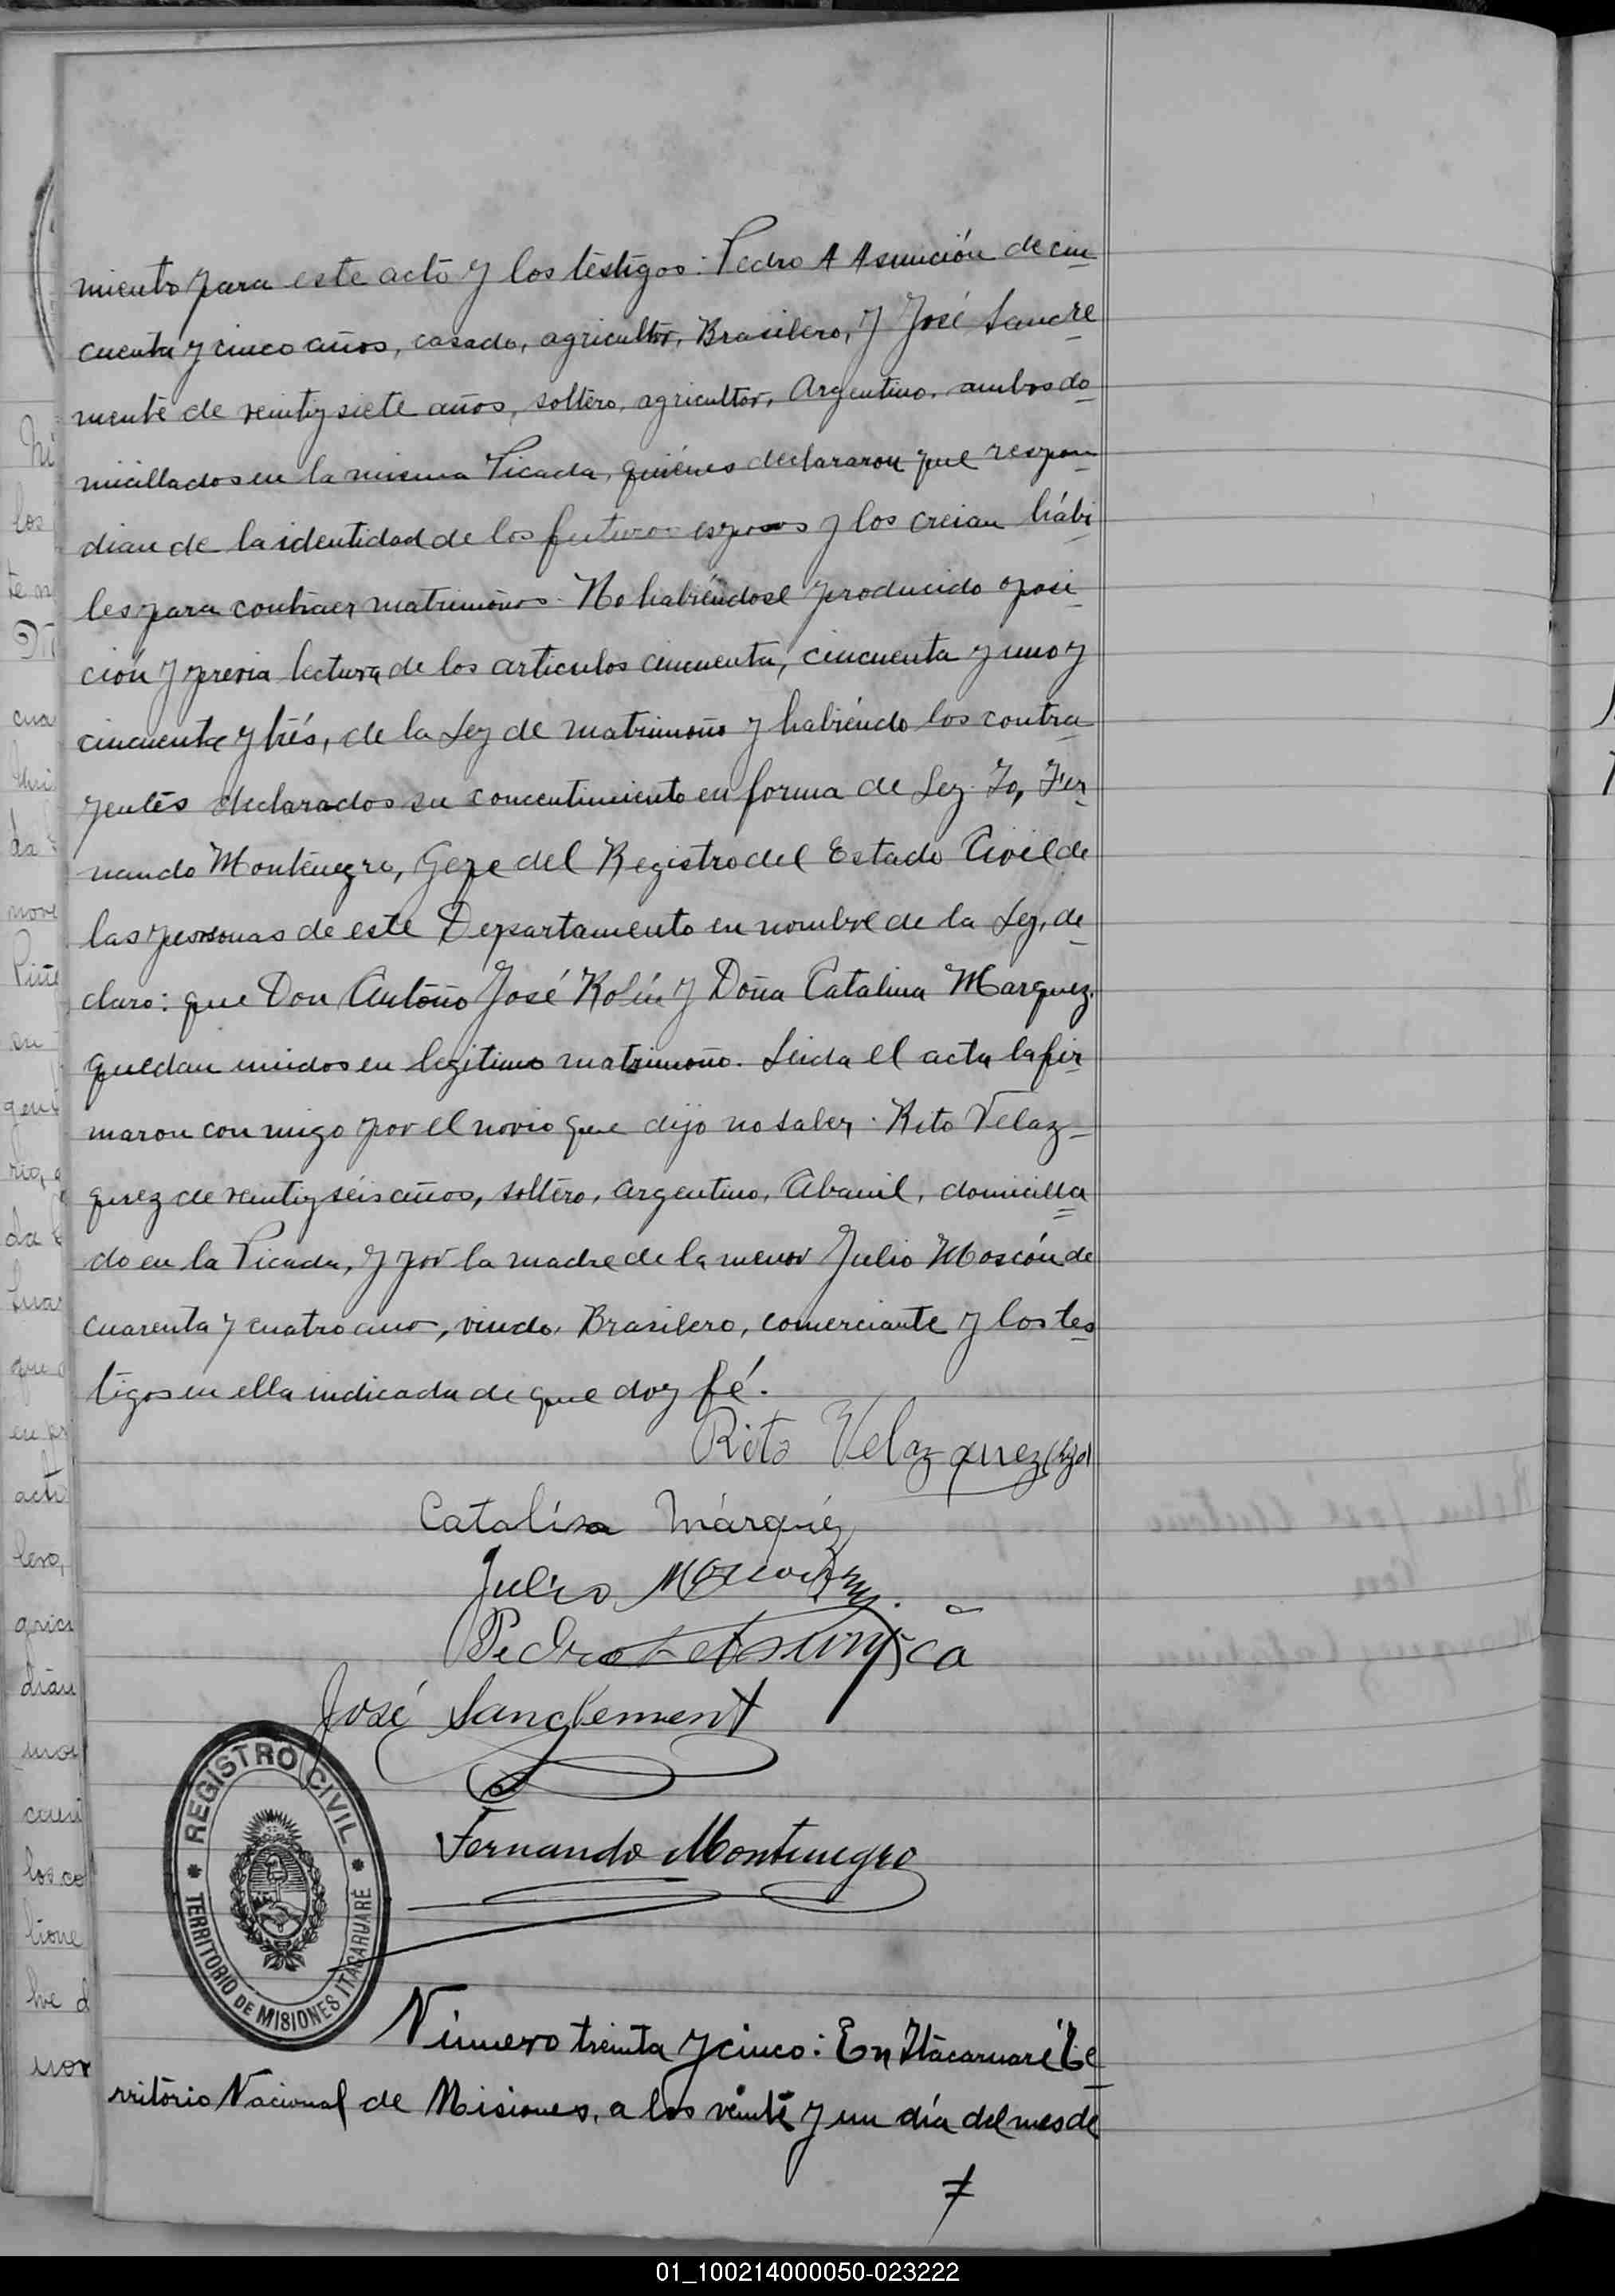 miento para este acto y los testigos: Pedro A Asunción de cin
cuenta y cinco años, casado, agricultor, Brasilero, y José Sancle
mente de veintiy siete años, soltero, agricultor, Argentino, ambos do
micillados en la misma Picada, quiénes declararon que respon
dian de la identidad de los futuros esposos y los creian hábi
les para contraer matrimonios. No habiéndose producido oposi
ción y previa lectura de los articulos cincuenta, cincuenta y uno y
cincuenta y trés, de la Ley de matrimonio y habiéndo los contra
yentes declarados su concentimiento en forma de Ley. Yo, Fer
nando Montenegro, Gefe del Registro del Estado Civil de
las personas de este Departamento en nombre de la Ley, de
claro: que Don Antonio José Kolín y Doña Catalina Marquez.
quedan unidos en legitimo matrimonio. Leida el acta la fir
maron con migo por el novio que dijo no saber. Rito Velaz
quez de veintiy séis años, soltéro, argentino, Abanil, domicilla
do en la Picada, y por la madre de la menor Julio Moscón de
cuarenta y cuatro años, viudo, Brasilero, comerciante y los tes
tigos en ella indicada de que doy fé.
Rito Velazquez (hijo)
Catalina Márquéz
Julio
Pedro A Asunçcão
José Sanclement
REGISTRO CIVIL
TERRITORIO DE MISIONES ITACARUARÉ
Fernando Montenegro
Número treinta y cinco: En Itácaruaré Te
rritório Nacional de Misiones, a los veinte y un día del mes de
01_100214000050-023222